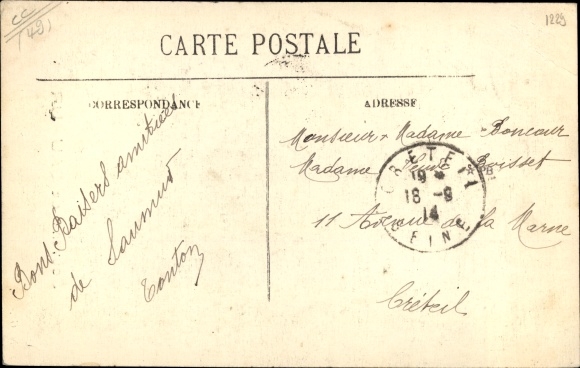 CC
(49)
1229
CARTE POSTALE
CORRESPONDANCE
ADRESSE
Bons Baisers amitiés
de Saumur
Tonton
Monsieur Madame Boncour
Madame Boisset
11 Avenue de la Marne
Créteil
CRETEIL
19 *
18 - 9
14
SEINE